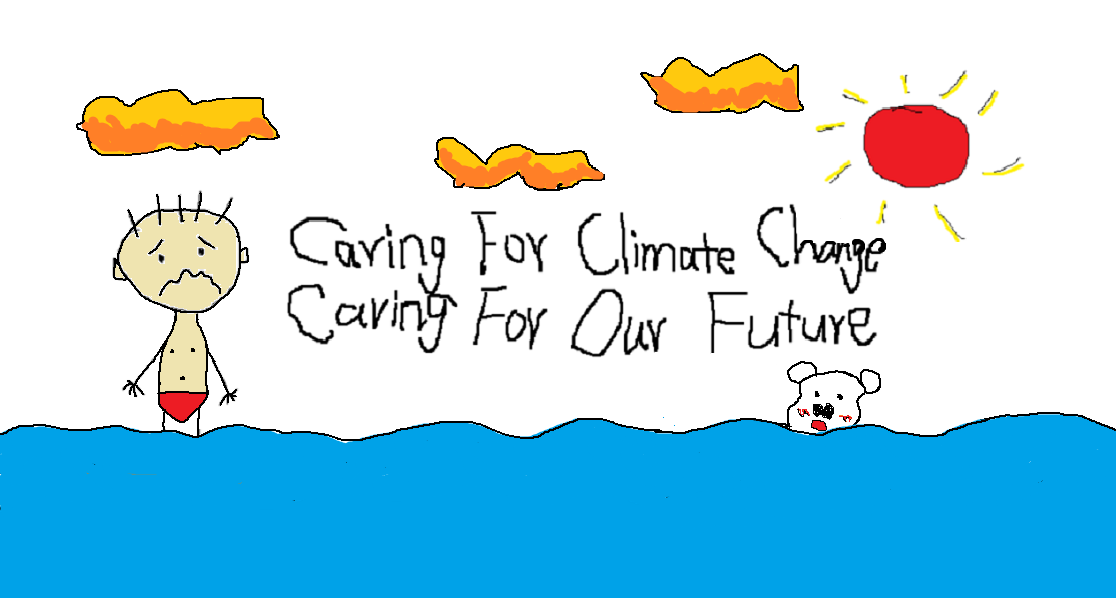 Caring For Climate Change
Caring For Our Future